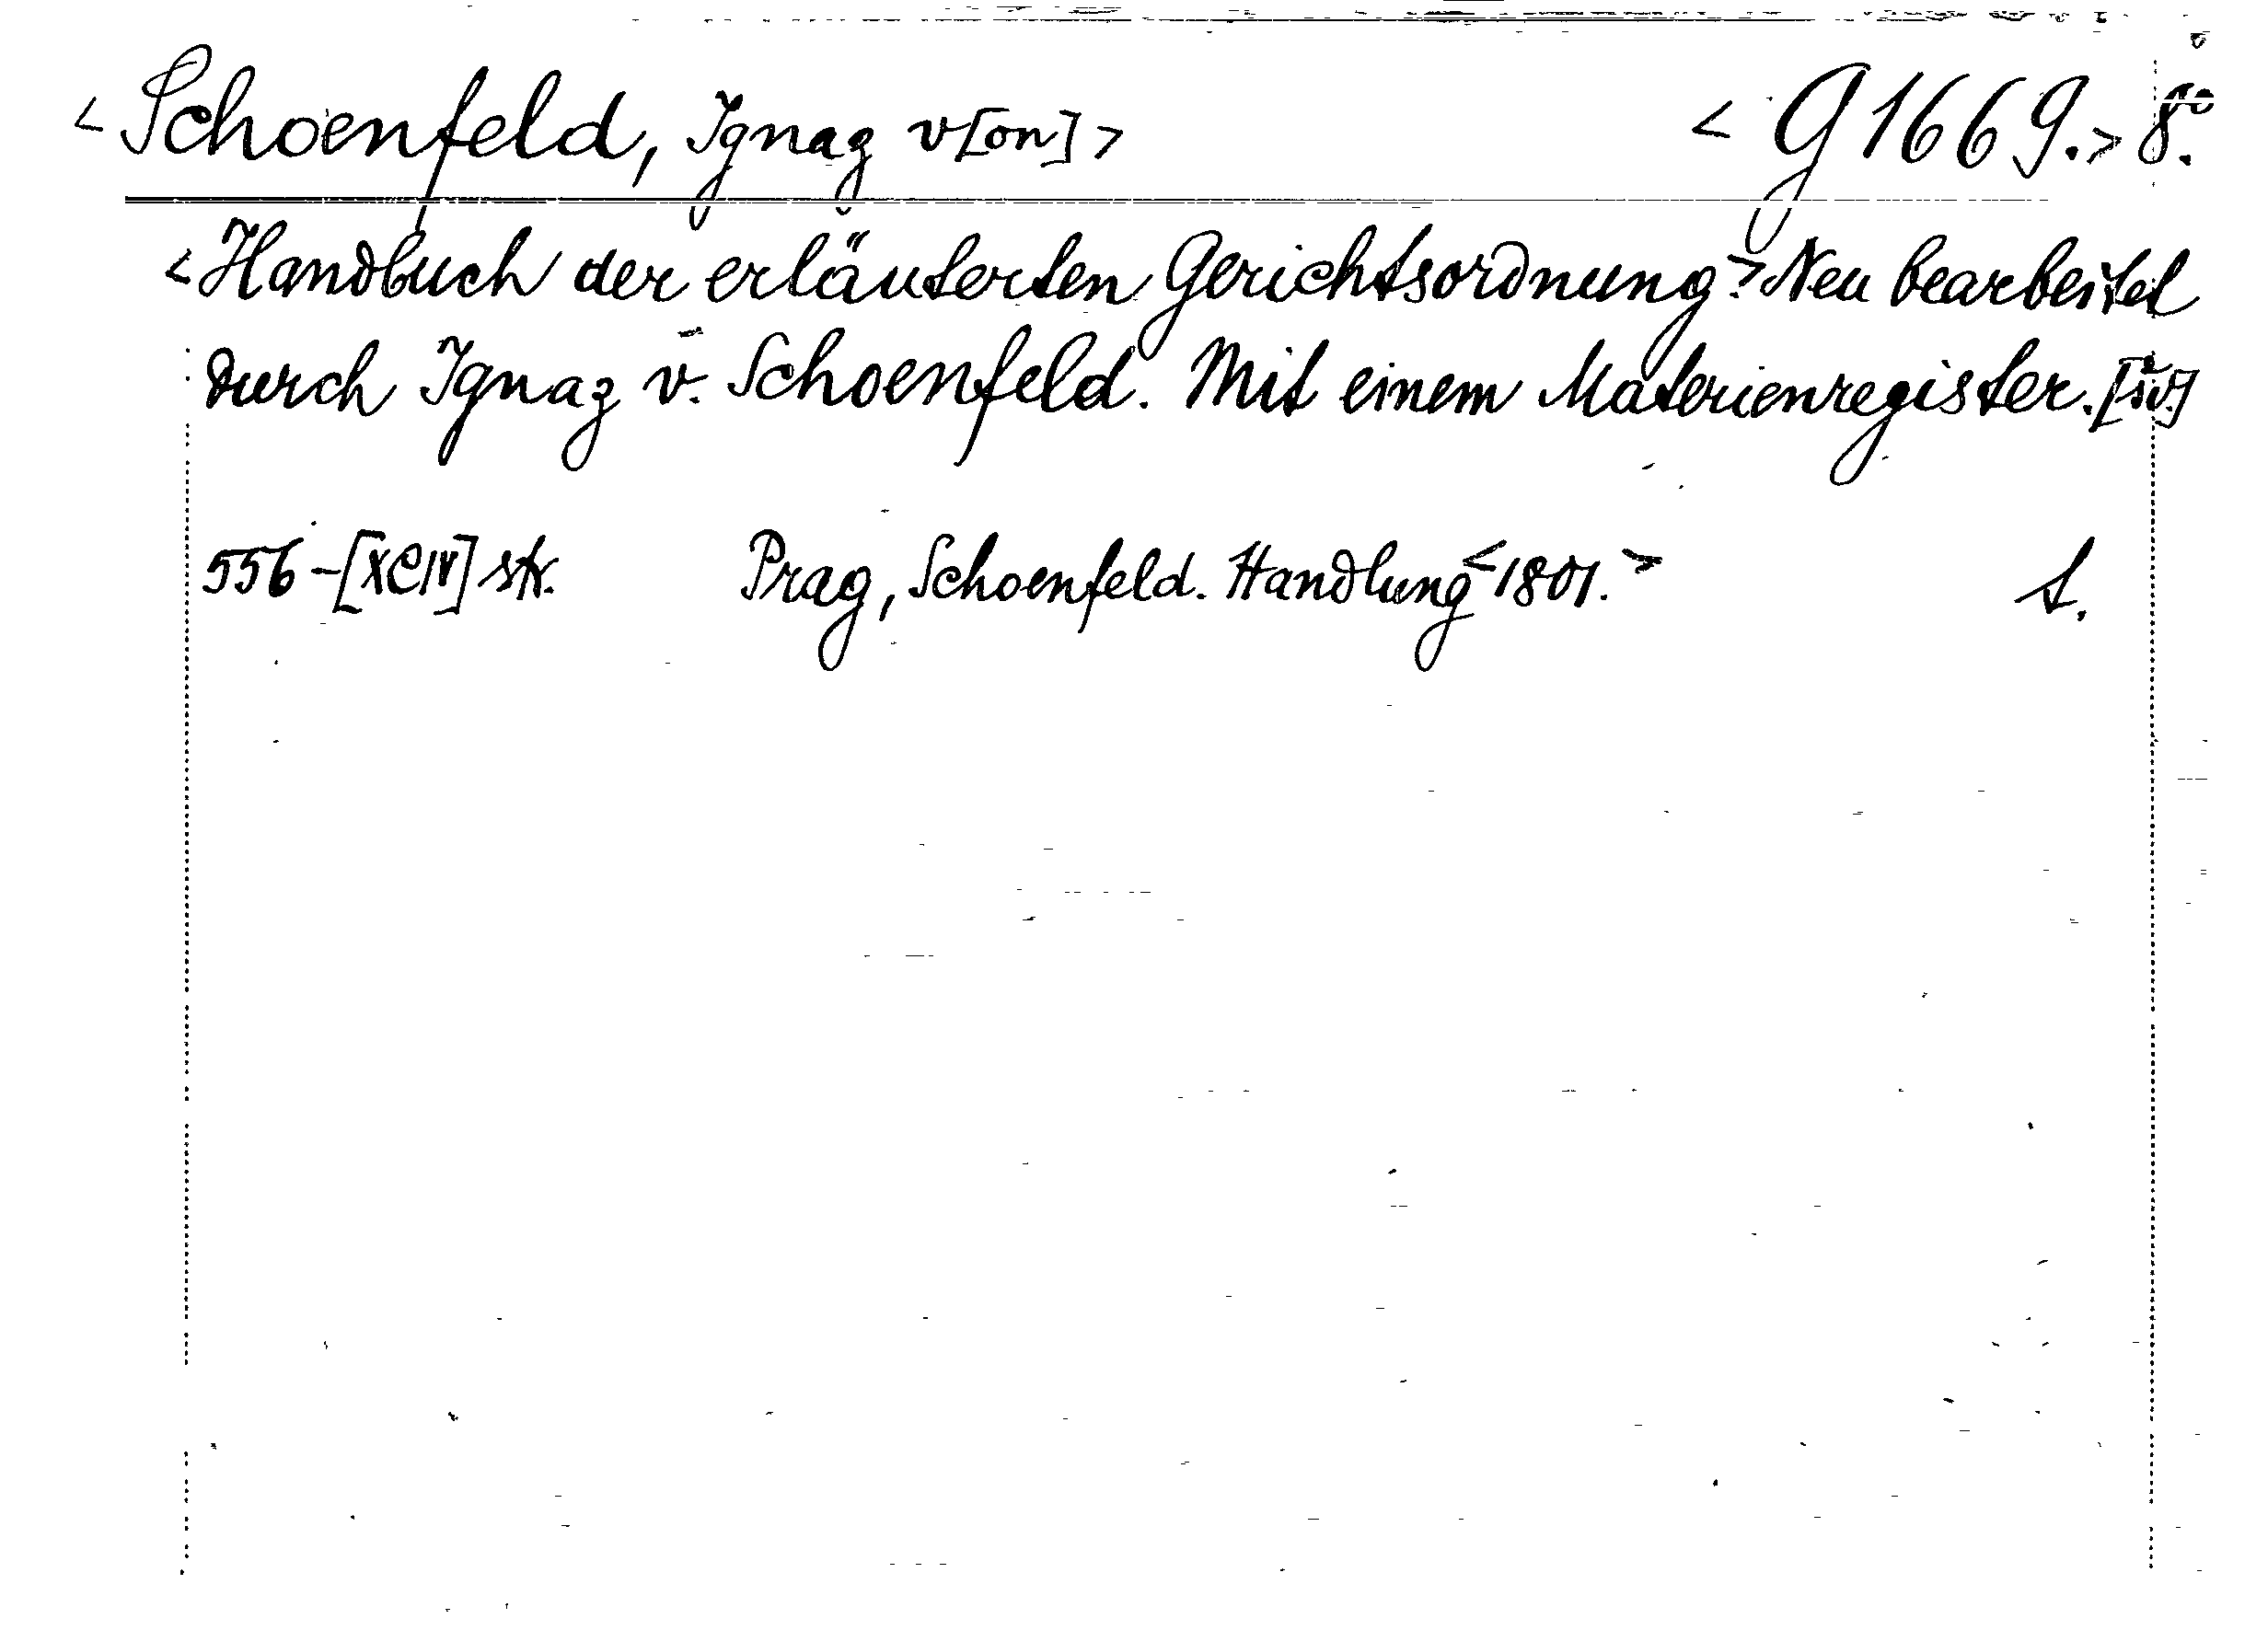 <Schoenfeld, Ignaz v[on]> <G 1669.> 8°.
<Handbuch der erläuterten Gerichtsordnung.> Neu bearbeitet
durch Ignaz v. Schoenfeld. Mit einem Materienregister.
556-[XCIV] str. Prag, Schoenfeld. Handlung <1801.> S.